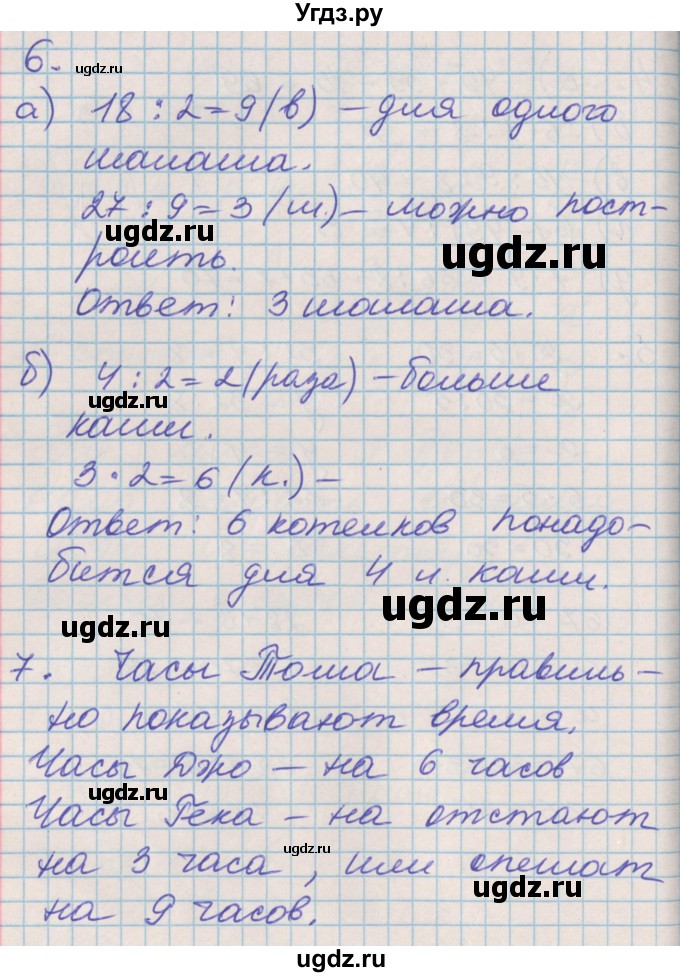 Угдз.ру
6.
ugdz.ru
а) 18 : 2 = 9 (в) – для одного
шалаша.
27 : 9 = 3 (ш.) – можно пост-
ugdz.ru
ugdz.ru
роить.
Ответ: 3 шалаша.
б) 4 : 2 = 2 (раза) – больше
ugdz.ru
каши.
3 · 2 = 6 (к.) –
Ответ: 6 котелков понадо-
бится для 4 л. каши.
ugdz.ru
ugdz.ru
7. Часы Тома – правиль-
но показывают время.
Часы Джо – на 6 часов
ugdz.ru
Часы Гека – на отстают
ugdz.ru
на 3 часа, или спешат
ugdz.ru
на 9 часов.
ugdz.ru